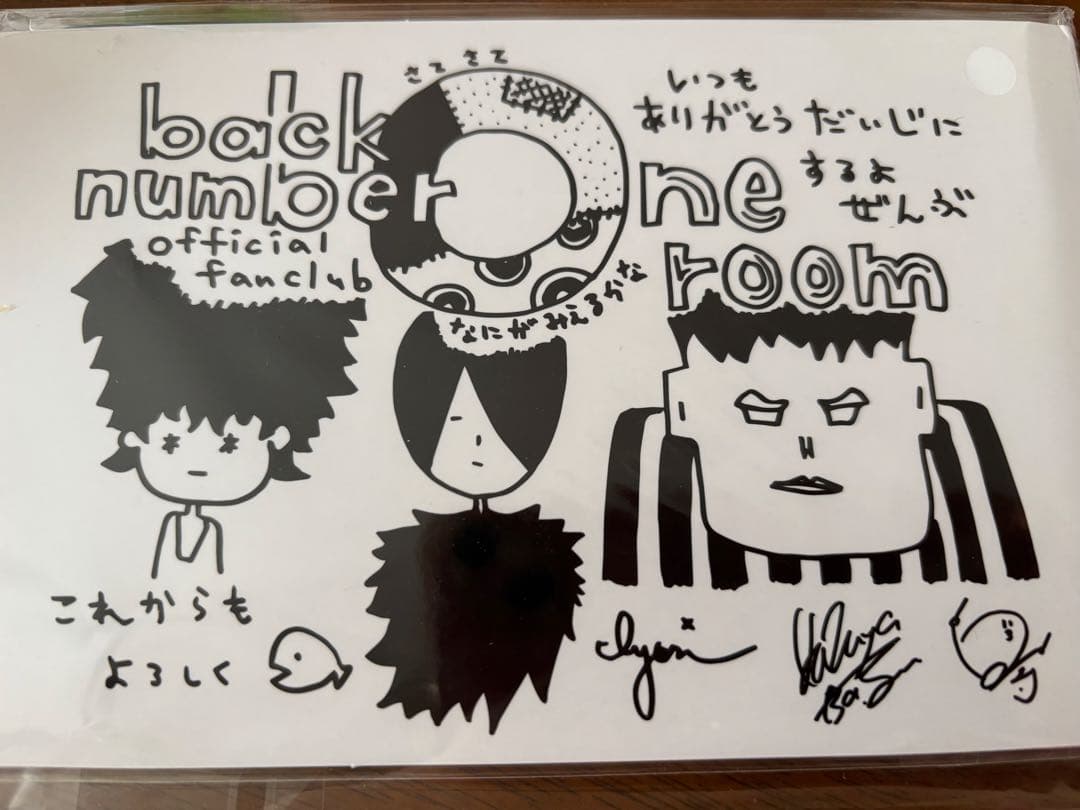 back
number
official
fanclub
さてさて
one
room
いつも
ありがとう だいじに
するよ
ぜんぶ
なにがみえるかな
これからも
よろしく
Iyori
Kazuya
Ba.